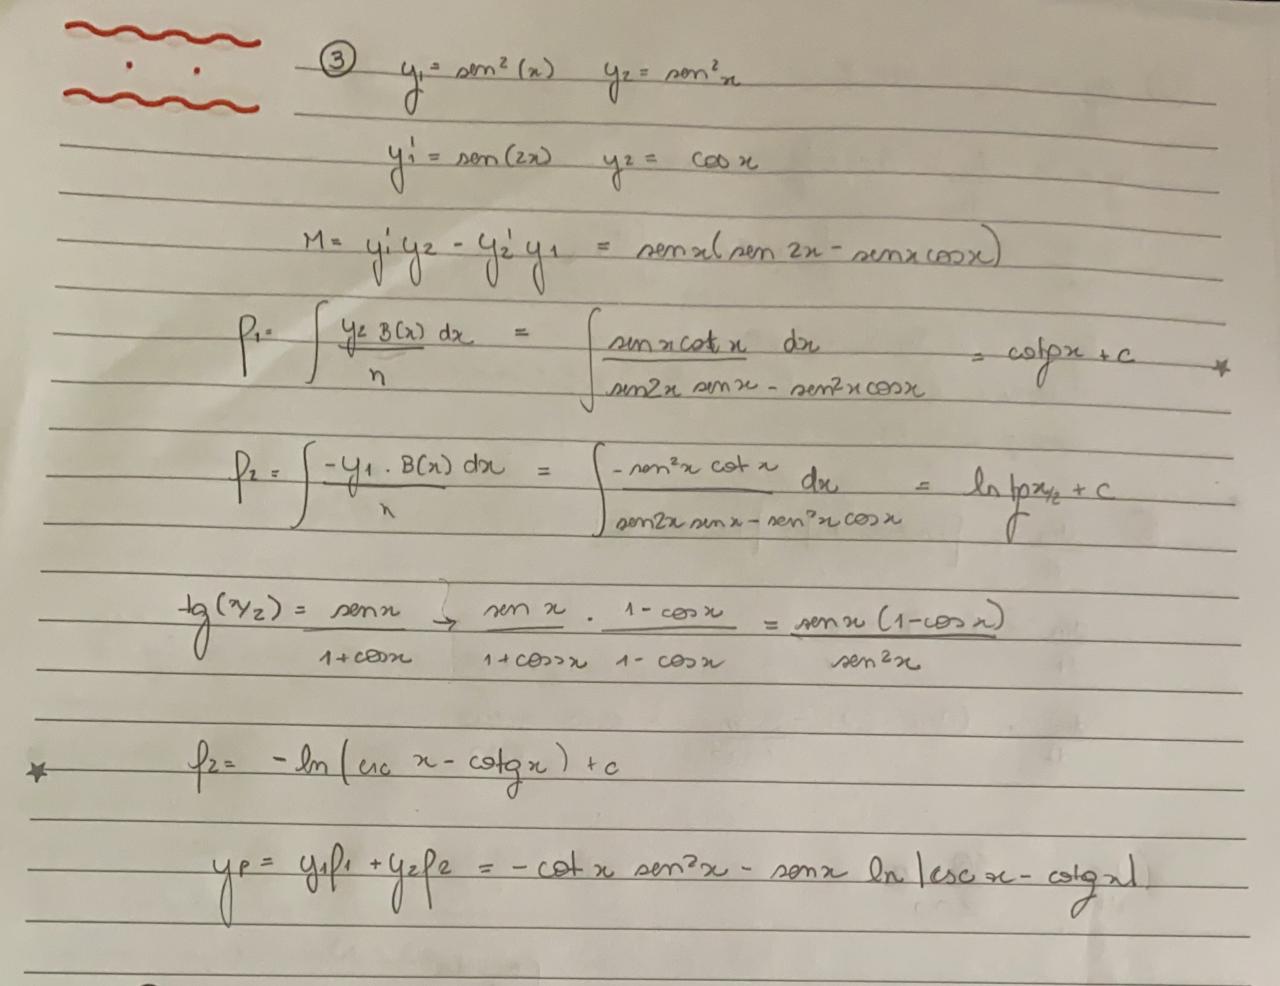 ③ y₁ = sen²(x) y₂ = sen²x
y₁' = sen(2x) y₂ = cos x
M = y₁'y₂ - y₂'y₁ = senx(sen 2x - senx cosx)
f₁ = ∫ y₂ B(x) dx / n = ∫ sin x cot x / sin2x senx - sen²x cosx dx = cotgx + c ★
f₂ = ∫ -y₁ . B(x) dx / n = ∫ -sen²x cot x / sen2x senx - sen²x cosx dx = ln tgx/2 + c
tg(x/2) = senx / 1+cosx → sen x / 1+cosx . 1-cosx / 1-cosx = senx (1-cosx) / sen²x
★ f₂ = -ln(csc x - cotgx) + c
yp = y₁f₁ + y₂f₂ = -cot x sen²x - senx ln |csc x - cotgx|